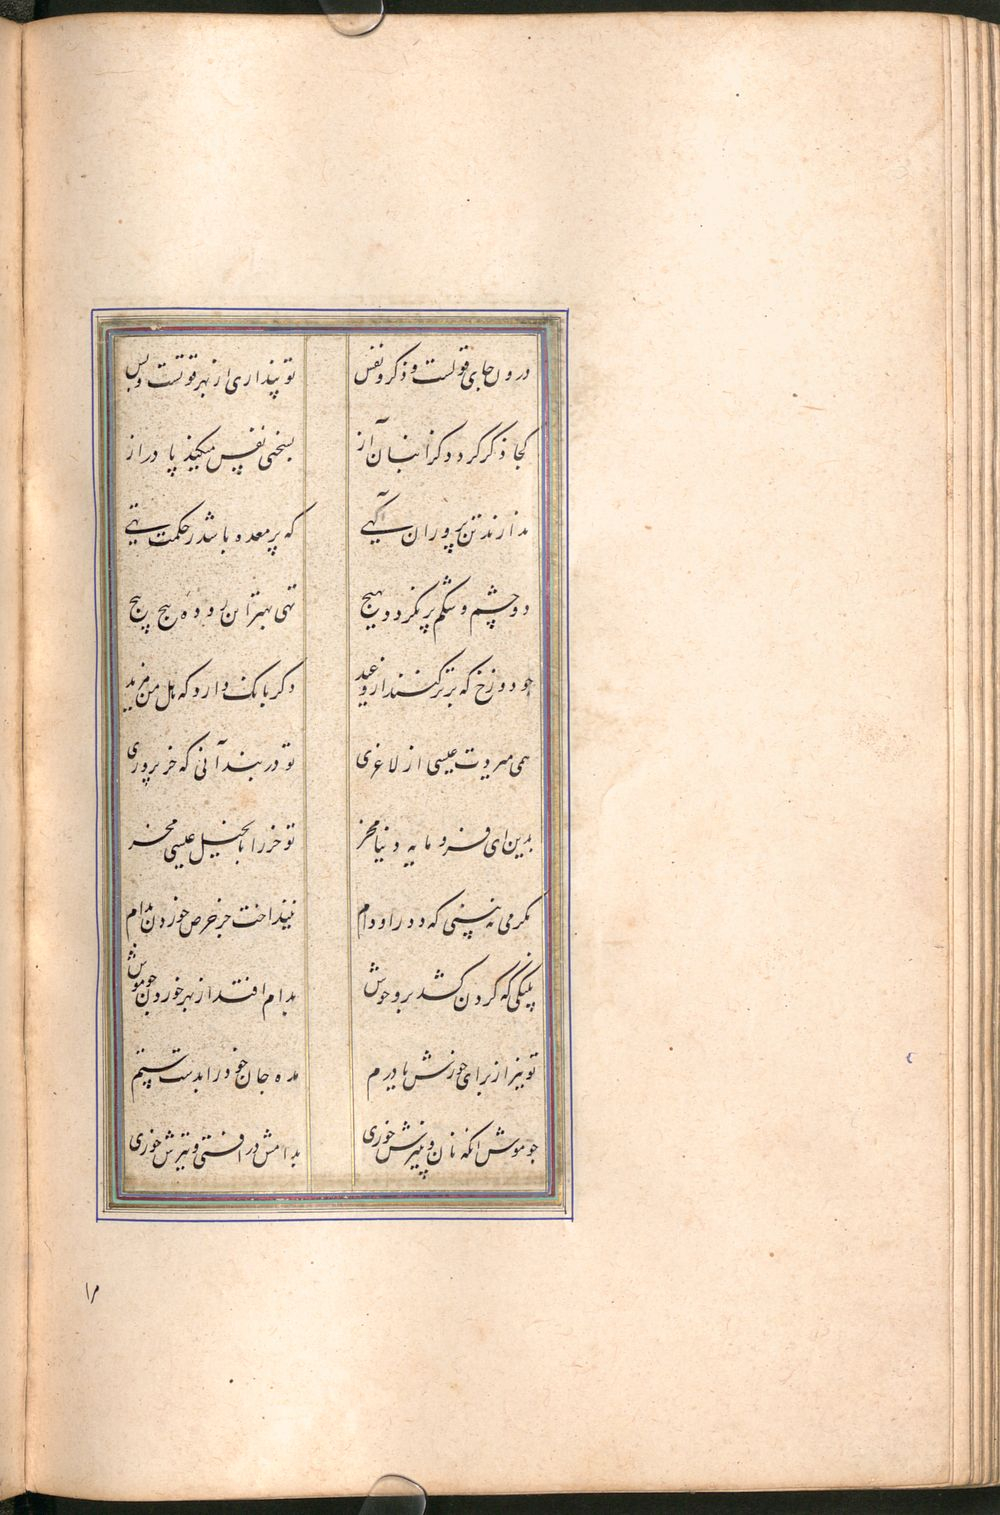 درون جای قوتست و ذکر و نفس تو پنداری از بهر قوتست و بس
کجا ذکر گردد کز انبان آز بسختی نفس میکند پا دراز
ندارند تن پروران آگهی که پر معده باشد ز حکمت تهی
دو چشم و شکم پر نگردد بهیچ تهی بهتر این روده پیچ پیچ
چو دوزخ که برتر کنند از وعید دگر بانک دارد که هل من مزید
همی میردت عیسی از لاغری تو در بند آنی که خر پروری
بدین ای فرومایه دنیا مخر تو خر را بانجیل عیسی مخر
مگر می نه بینی که دد را و دام نینداخت جز حرص خوردن بدام
پلنگی که گردن کشد بر وحوش بدام افتد از بهر خوردن چو موش
تو نیز از برای خورش یا درم مده جان خود را بدست ستم
چو موش انکه نان و پنیرش خوری بدامش در افتی و تیرش خوری